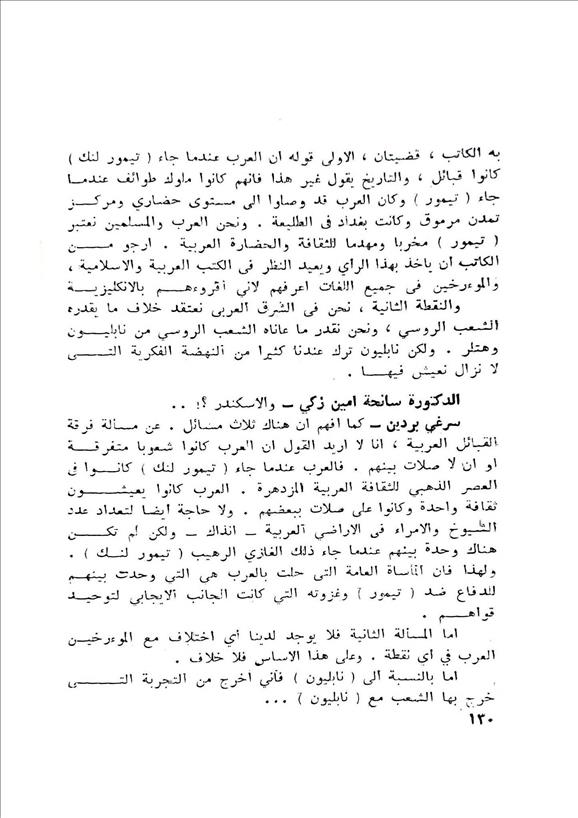 به الكاتب ، قضيتان ، الاولى قوله ان العرب عندما جاء ( تيمور لنك )
كانوا قبائل ، والتاريخ يقول غير هذا فانهم كانوا ملوك طوائف عندمــا
جاء ( تيمور ) وكان العرب قد وصلوا الى مستوى حضاري ومركــز
تمدن مرموق وكانت بغداد فى الطليعة . ونحن العرب والمسلمين نعتبر
( تيمور ) مخربا ومهدما للثقافة والحضارة العربية . ارجو مـــن
الكاتب أن ياخذ بهذا الرأي ويعيد النظر فى الكتب العربية والاسلامية ،
والموءرخين فى جميع اللغات اعرفهم لاني أقروءهــم بالانكليزيــة
والنقطة الثانية ، نحن فى الشرق العربى نعتقد خلاف ما يقدره
الشعب الروسي ، ونحن نقدر ما عاناه الشعب الروسي من نابليــون
وهتلر . ولكن نابليون ترك عندنا كثيرا من النهضة الفكرية التـــى
لا نزال نعيش فيهــا .
الدكتورة سانحة امين زكي ــ والاسكندر ؟! . .
سرغي بردين ــ كما افهم ان هناك ثلاث مسائل . عن مسالة فرقة
القبائل العربية ، انا لا اريد القول ان العرب كانوا شعوبا متفرقــة
او ان لا صلات بينهم . فالعرب عندما جاء ( تيمور لنك ) كانــوا فى
العصر الذهبي للثقافة العربية المزدهرة . العرب كانوا يعيشـــون
ثقافة واحدة وكانوا على صلات ببعضهم . ولا حاجة ايضا لتعداد عدد
الشيوخ والامراء فى الاراضي العربية ــ انذاك ــ ولكن لم تكــن
هناك وحدة بينهم عندما جاء ذلك الغازي الرهيب ( تيمور لنــك ) .
ولهذا فان المأساة العامة التى حلت بالعرب هي التي وحدت بينهــم
للدفاع ضد ( تيمور ) وغزوته التي كانت الجانب الايجابي لتوحيــد
قواهــم .
اما المسألة الثانية فلا يوجد لدينا أي اختلاف مع الموءرخيــن
العرب في اي نقطة . وعلى هذا الاساس فلا خلاف .
اما بالنسبة الى ( نابليون ) فأني أخرج من التجربة التــــى
خرج بها الشعب مع ( نابليون ) ...
١٣٠